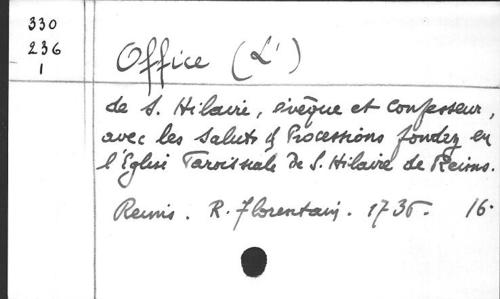 330
236
1
Office (L')
de S. Hilaire, évêque et confesseur,
avec les Saluts & Processions fondez en
l'Eglise Paroissiale de S. Hilaire de Reims.
Reims. R. Florentain. 1736. 16.